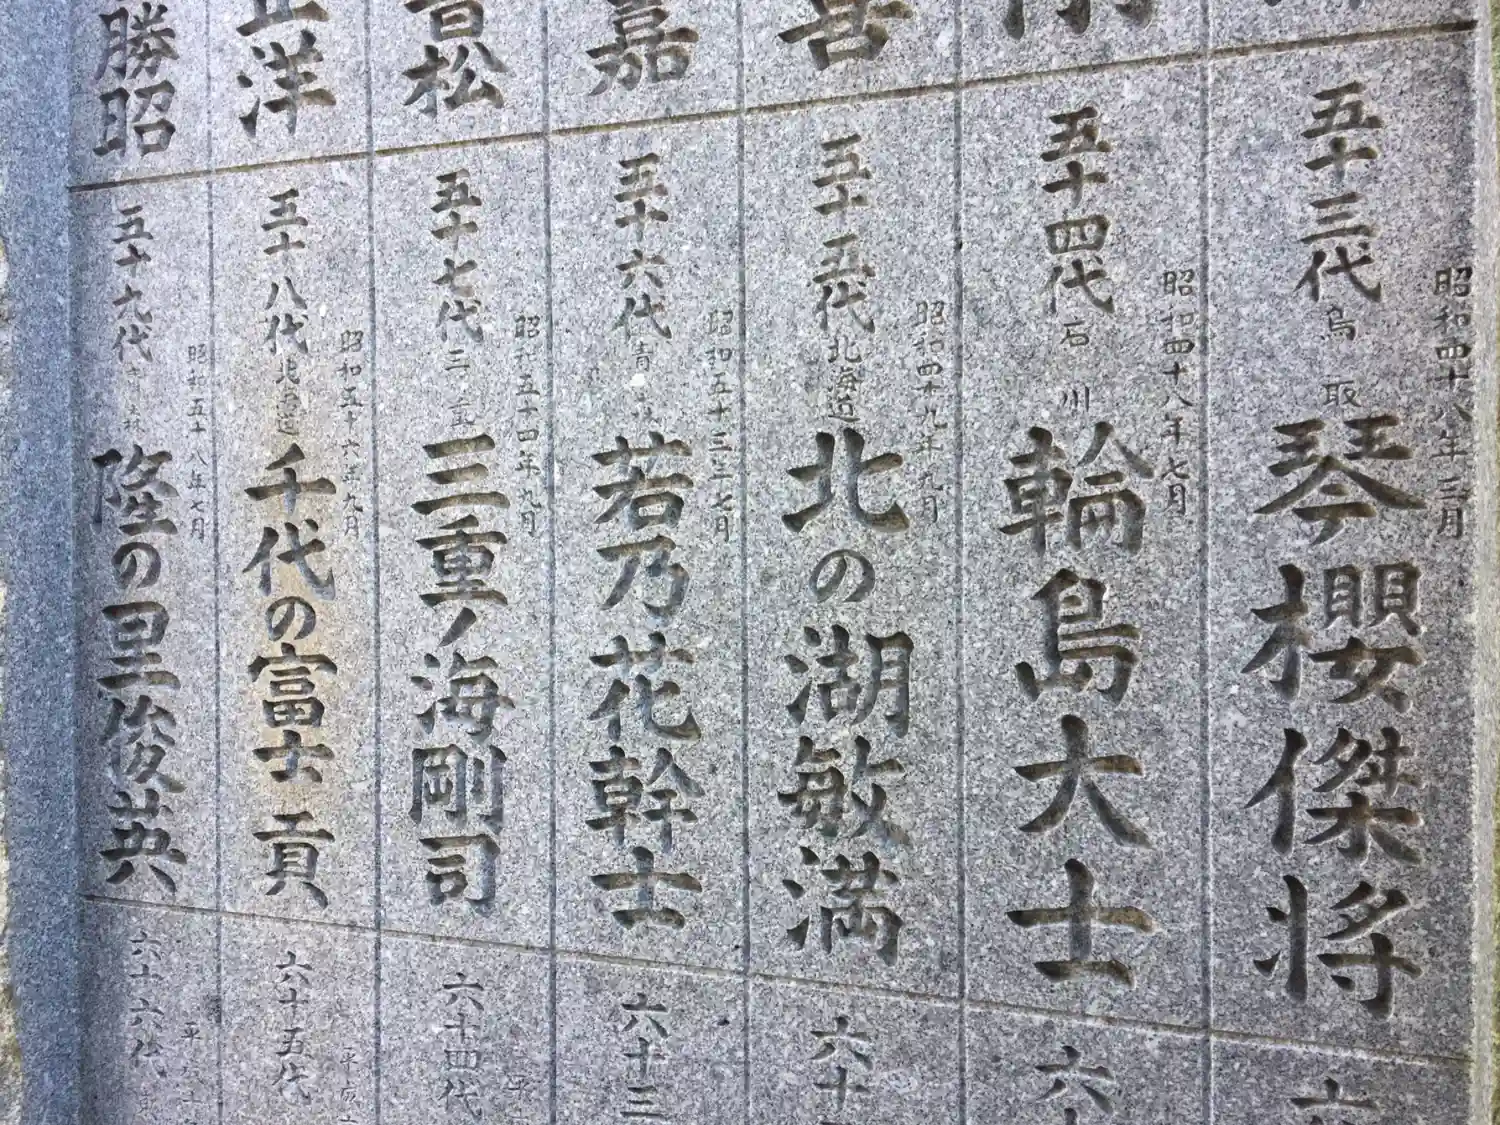 善
嘉
松
洋
勝昭
五十三代 鳥取
琴櫻傑将
昭和四十八年三月
五十四代 石川
輪島大士
昭和四十八年七月
五十五代 北海道
北の湖敏満
昭和四十九年九月
五十六代 青森
若乃花幹士
昭和五十三年七月
五十七代 三重
三重ノ海剛司
昭和五十四年九月
五十八代 北海道
千代の富士貢
昭和五十六年九月
五十九代 青森
隆の里俊英
昭和五十八年七月
六十
六十三
六十四代
六十五代
六十六代